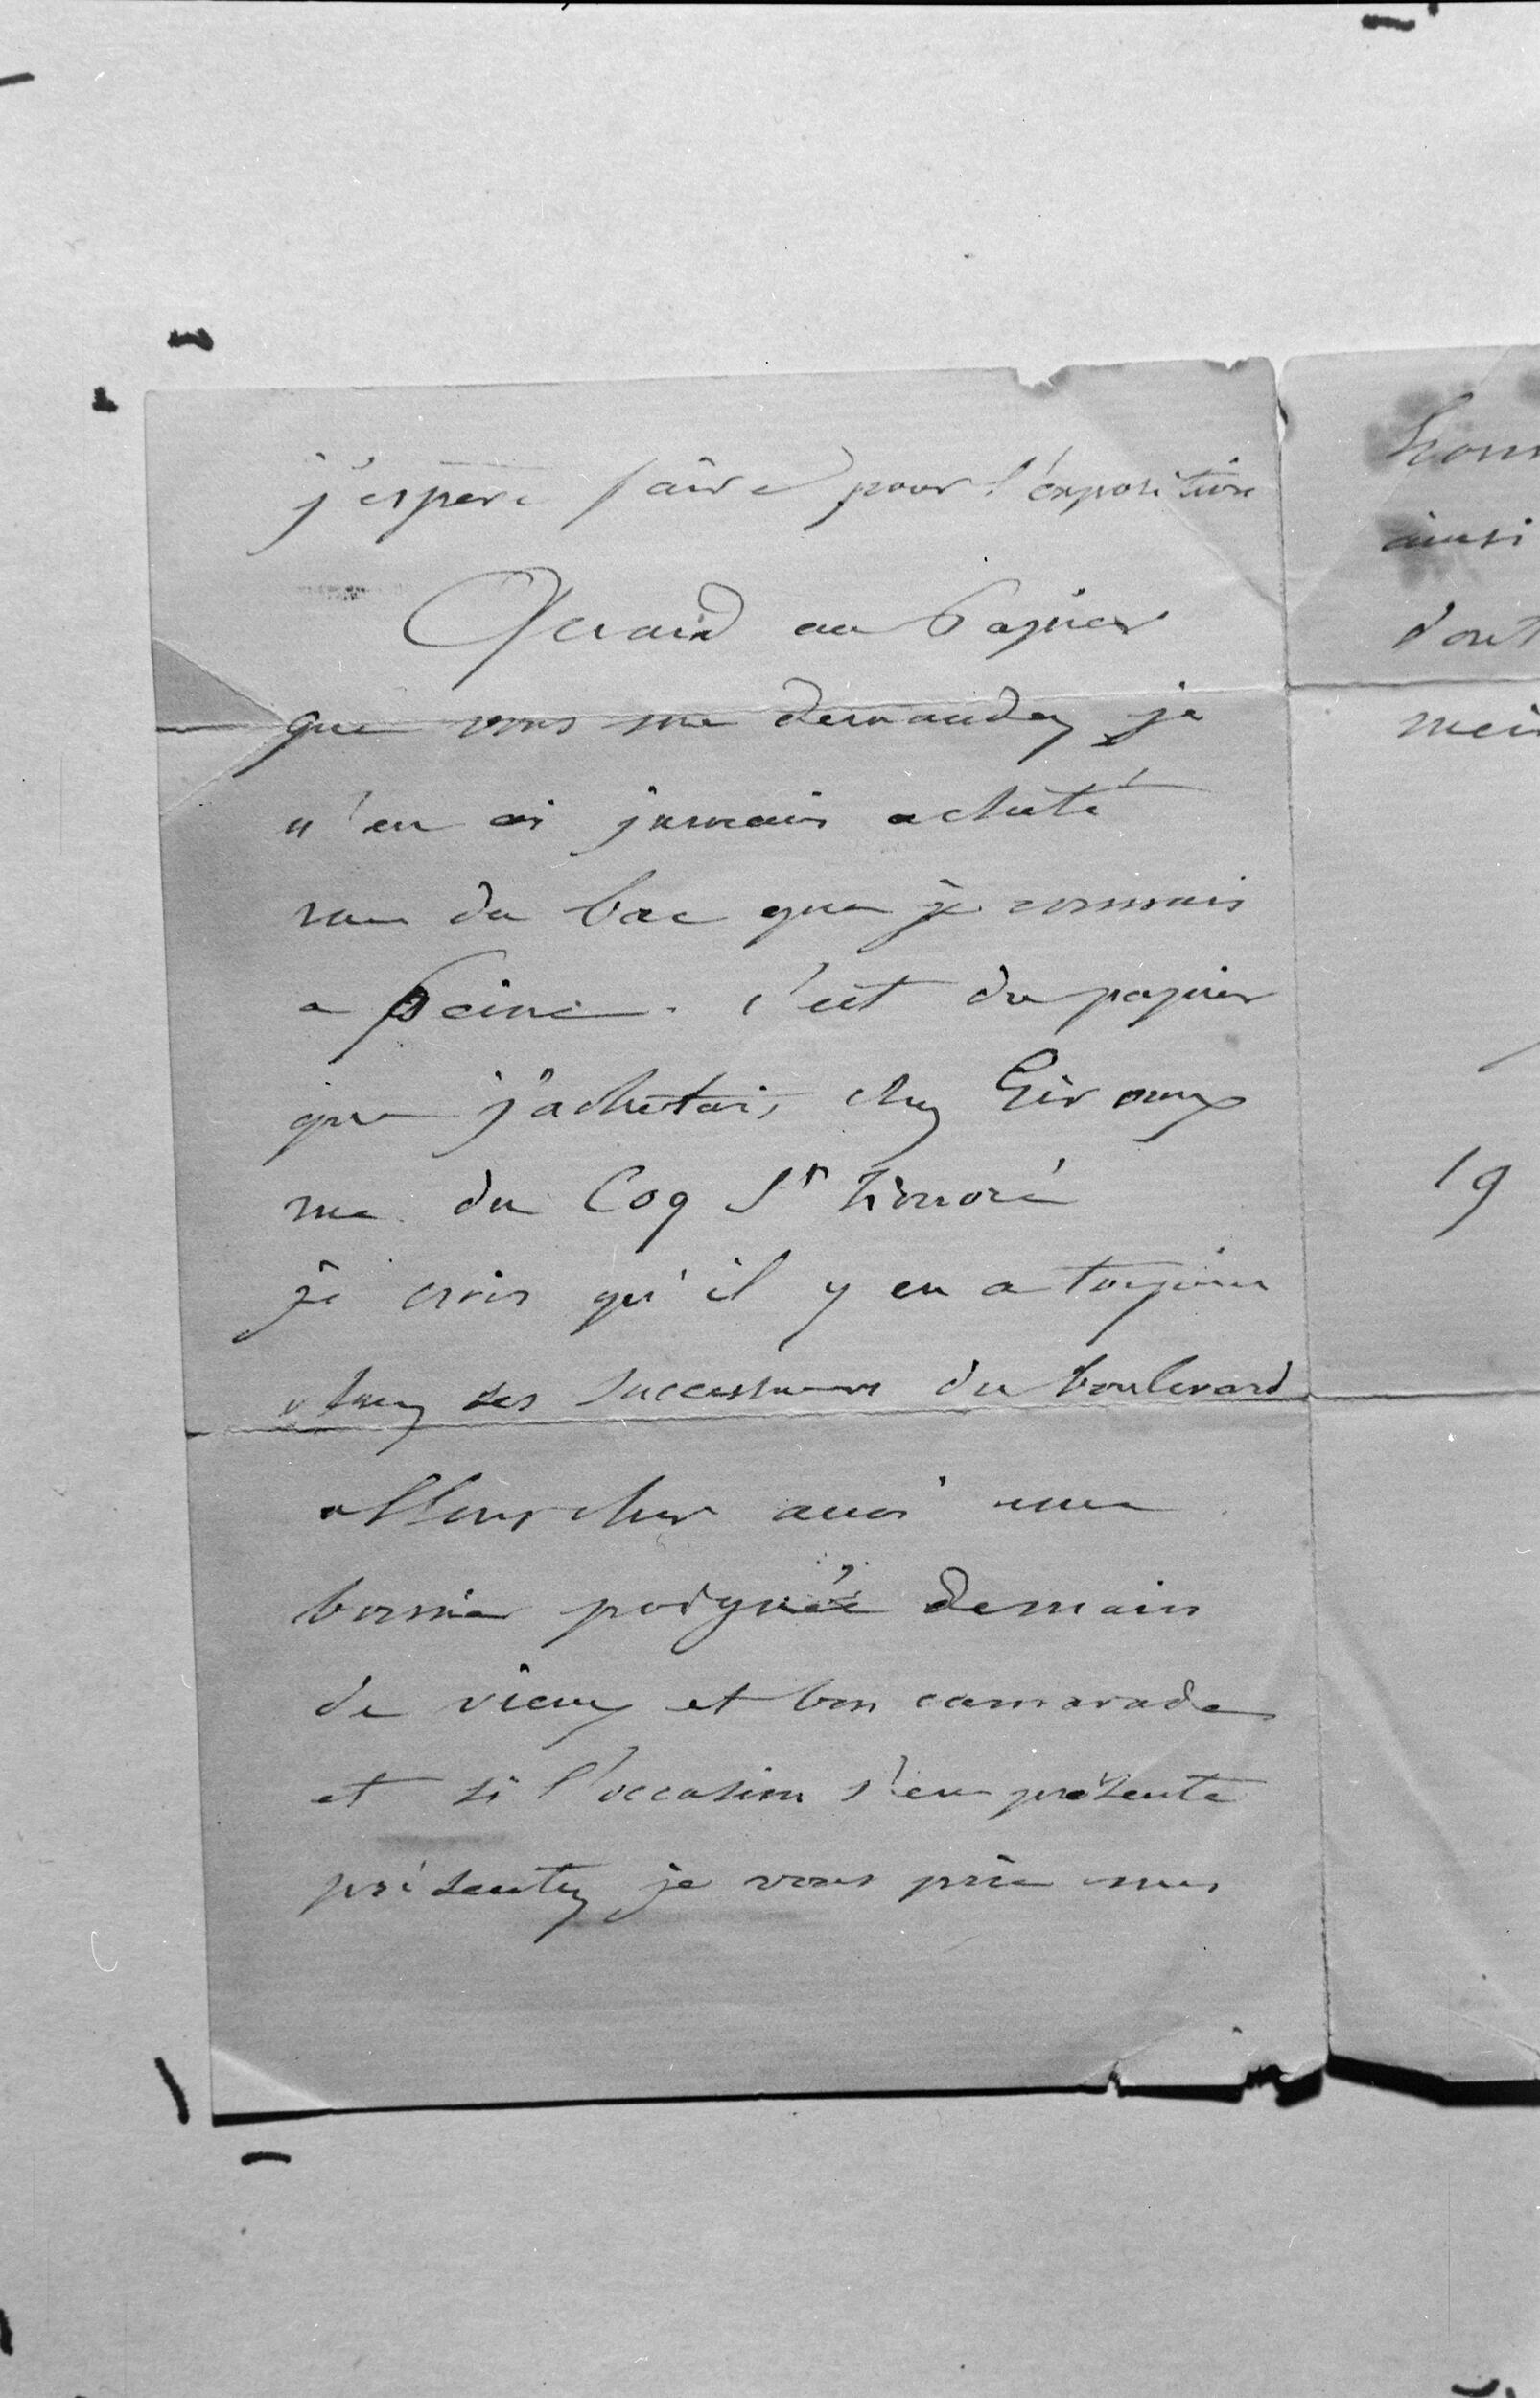 j'espere faire pour l'exposition
Quand au Papier
que vous me demandez je
n'en ai jamais acheté
rue du bac que je connais
a Peine. c'est du papier
que j'achetais chez Giroux
rue du Coq St honoré
je crois qu'il y en a toujour
chez ses successeurs du boulevard
allons cher ami une
bonne poignée demain
de vieux et bon camarade
et si l'occasion s'en présente
présentez je vous prie mes
hom
ainsi
dont
19